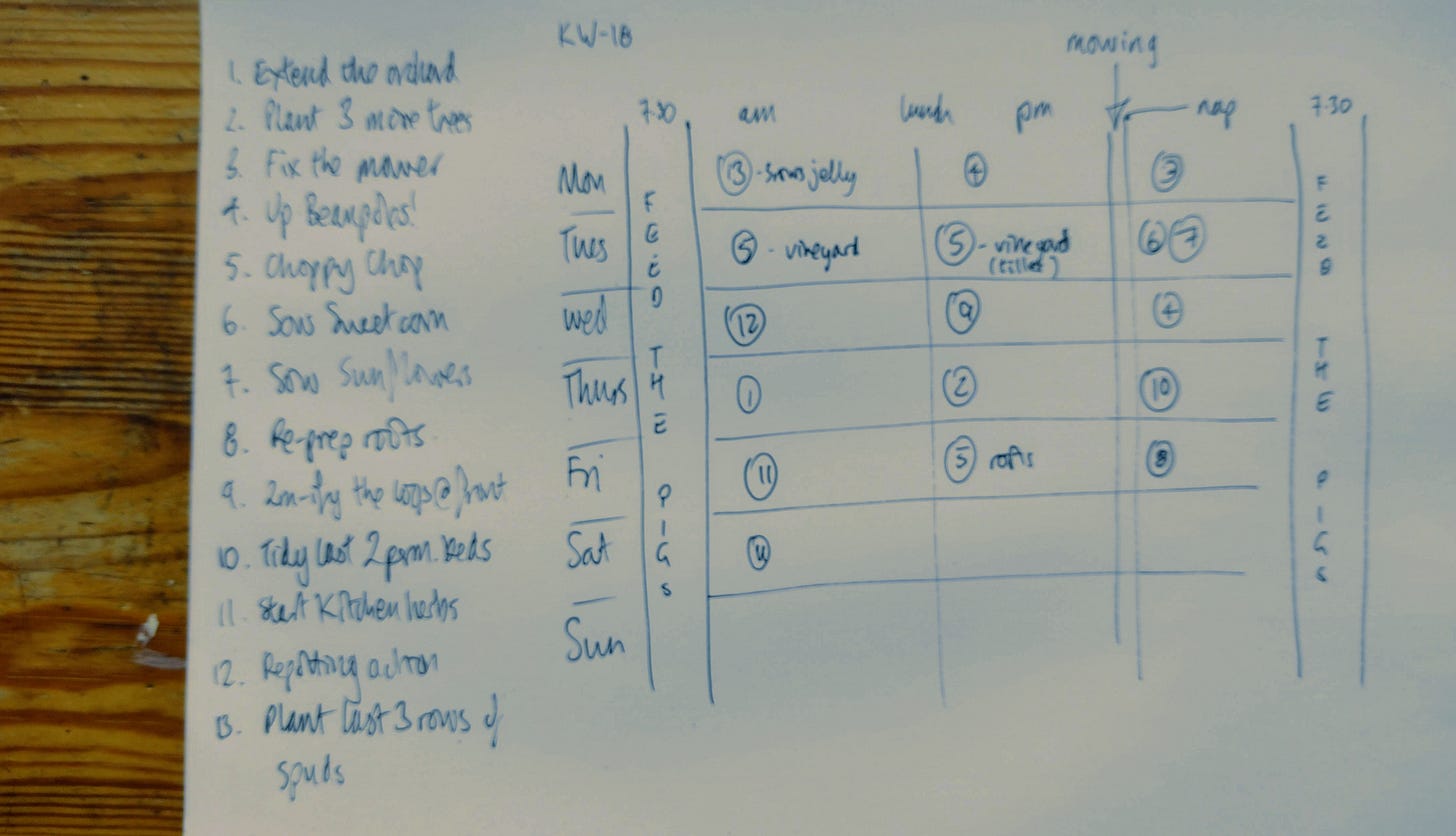 KW-18
mowing
1. Extend the orchard
2. Plant 3 more trees
3. Fix the mower
4. Up Beanpoles!
5. Choppy Chop
6. Sow Sweetcorn
7. Sow Sunflowers
8. Re-prep roots
9. 2m-ify the loops @ front
10. Tidy last 2 perm. beds
11. Start Kitchen herbs
12. Repotting action
13. Plant last 3 rows of
spuds
7.30 am lunch pm nap 7.30
Mon 13 - jelly 4 3
Tues 5 - vineyard 5 - vineyard 6 7
Wed 12 9 4
Thurs 1 2 10
Fri 11 5 8
Sat
Sun
FEED THE PIGS
FEED THE PIGS